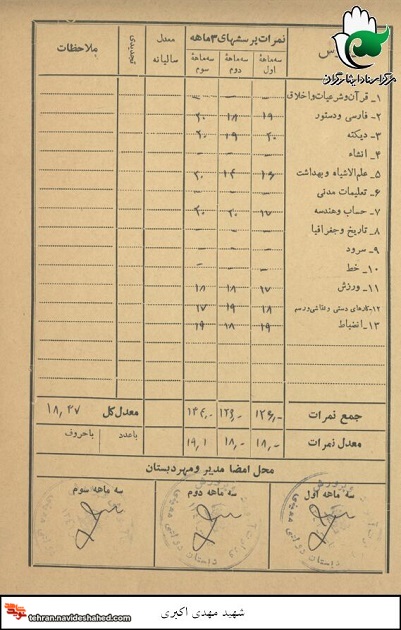 مرکز اسناد ایثارگران
نمرات پرسشهای ۳ماهه
سه‌ماههٔ اول
سه‌ماههٔ دوم
سه‌ماههٔ سوم
معدل سالیانه
تجدیدی
ملاحظات
۱ـ قرآن و شرعیات و اخلاق – – –
۲ـ فارسی و دستور ۱۹ ۱۸ ۲۰
۳ـ دیکته ۲۰ ۱۹ ۲۰
۴ـ انشاء – – –
۵ـ علم‌الاشیاء و بهداشت ۱۶ ۱۴ ۲۰
۶ـ تعلیمات مدنی – – –
۷ـ حساب و هندسه ۱۷ ۲۰ ۲۰
۸ـ تاریخ و جغرافیا – – –
۹ـ سرود – –
۱۰ـ خط – –
۱۱ـ ورزش ۱۷ ۱۸ ۱۸
۱۲ـ کارهای دستی و نقاشی و رسم ۱۸ ۱۹ ۱۷
۱۳ـ انضباط ۱۹ ۱۸ ۱۹
جمع نمرات ۱۲۶٫- ۱۲۶٫- ۱۳۴٫- معدل کل ۱۸٫۳۷
معدل نمرات ۱۸٫- ۱۸٫- ۱۹٫۱ باعدد باحروف
محل امضا مدیر و مهر دبستان
سه ماهه اول
سه ماهه دوم
سه ماهه سوم
شهید مهدی اکبری
tehran.navideshahed.com